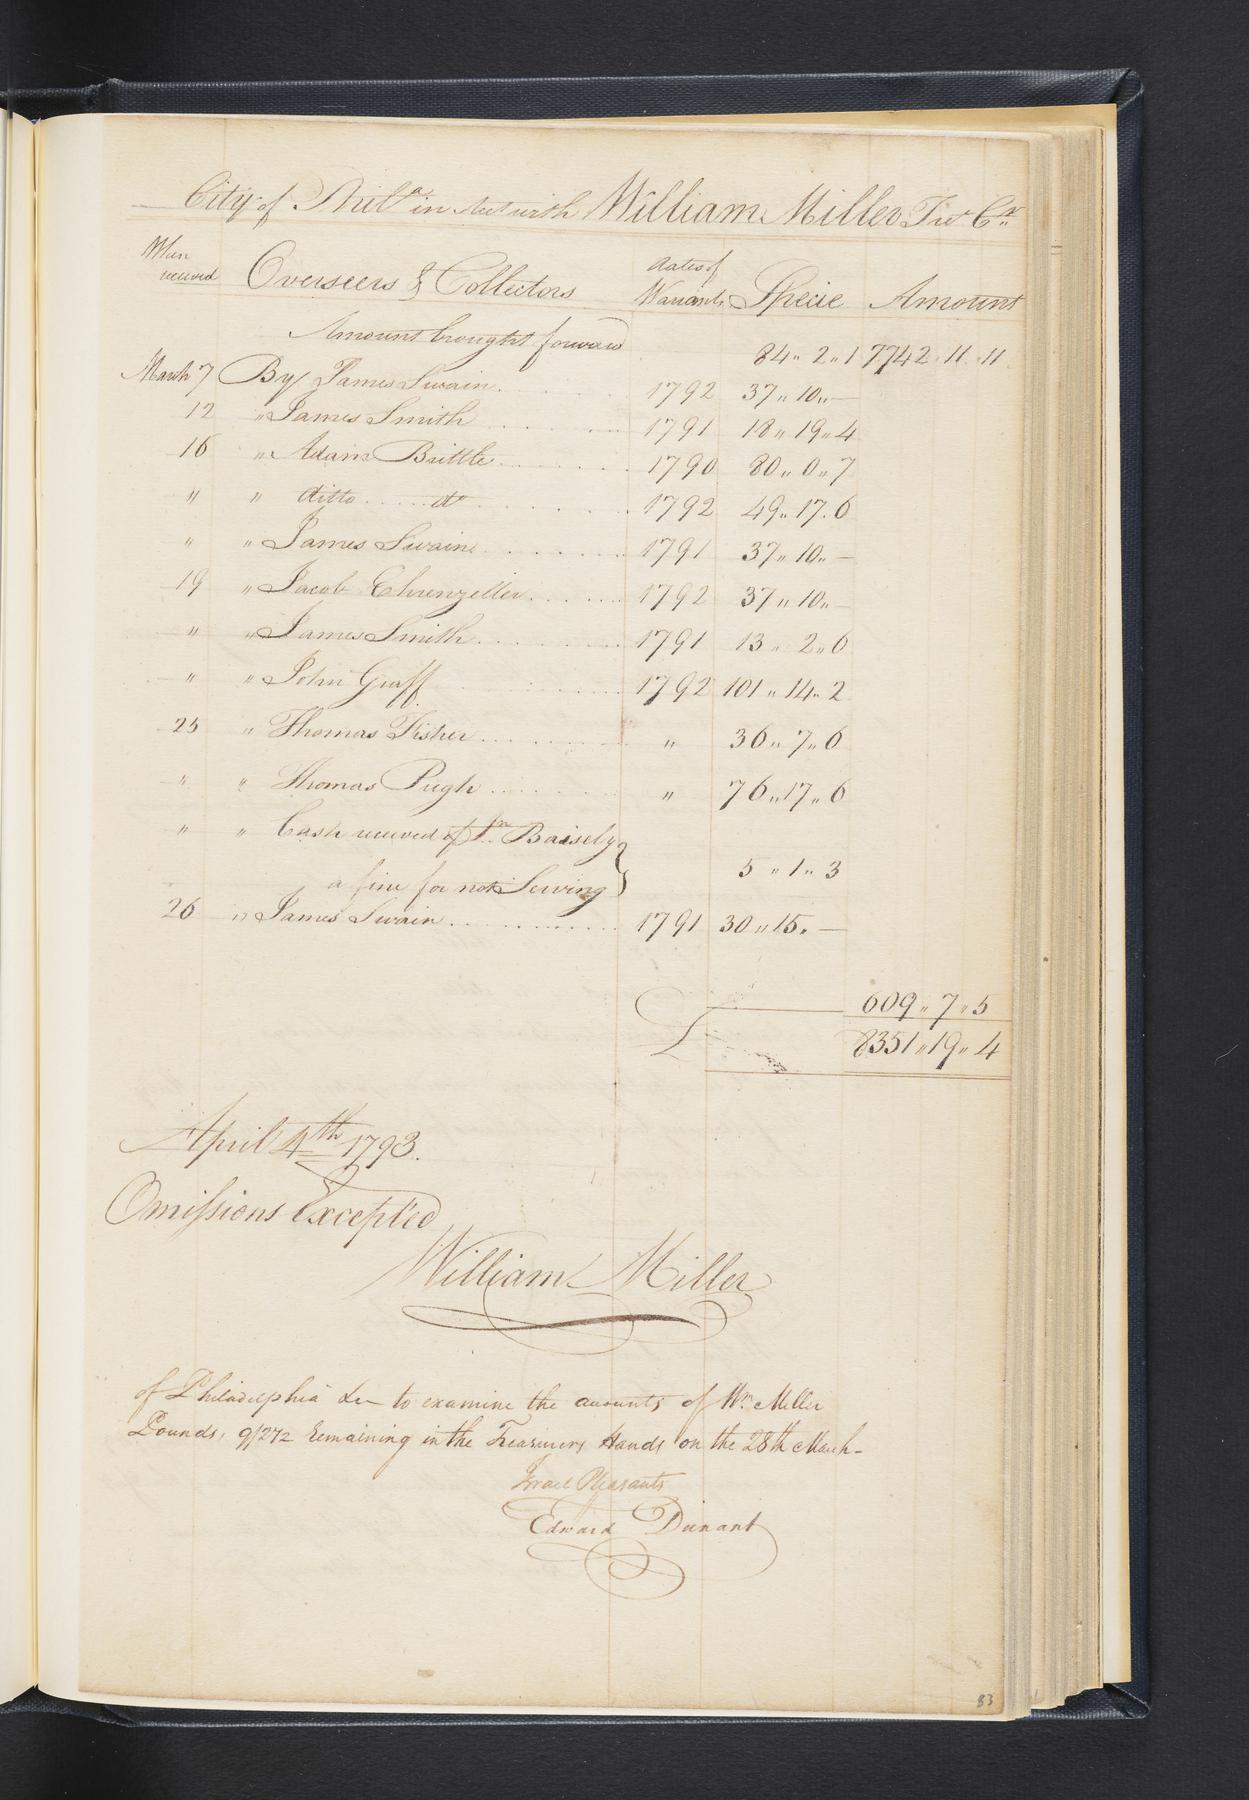 City of Phila in Act with William Miller Trr Cr
When received Overseers & Collectors dates of Warrants Specie Amount
Amount brought forward 84 " 2 " 1 7742 " 11 " 11
March 7 By James Swain 1792 37 " 10 " —
12 " James Smith 1791 18 " 19 " 4
16 " Adam Brittle 1790 80 " 0 " 7
" " ditto do 1792 49 " 17 . 6
" " James Swain 1791 37 " 10 " —
19 " Jacob Ehrenzeller 1792 37 " 10 " —
" " James Smith 1791 13 " 2 " 6
" " John Graff 1792 101 " 14 " 2
25 " Thomas Fisher " 36 " 7 " 6
" " Thomas Pugh " 76 " 17 " 6
" " Cash received of Jn Baisely
a fine for not Serving 5 " 1 " 3
26 " James Swain 1791 30 " 15 . —
609 " 7 " 5
£ 8351 " 19 " 4
April 4th 1793.
Omissions Excepted
William Miller
of Philadelphia &c to examine the accounts of Wm Miller
Pounds, 9/2½ remaining in the Treasurers Hands on the 28th March —
Israel Pleasants
Edward Dunant
83